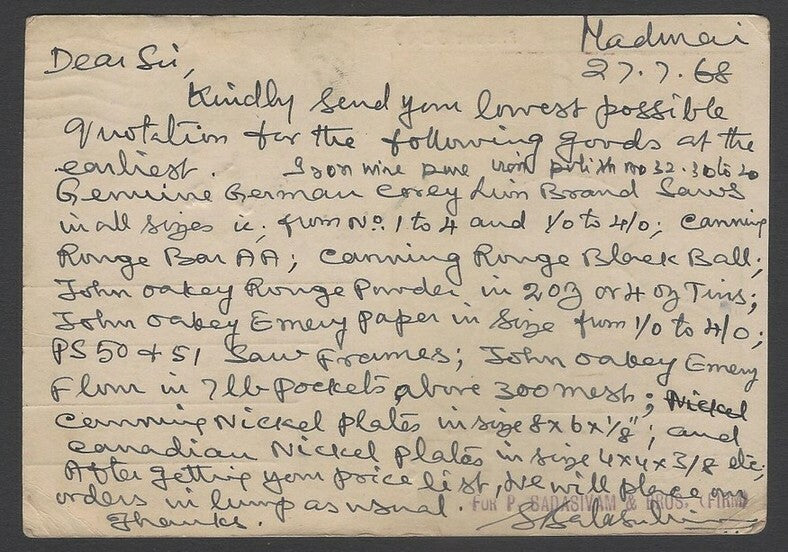 Madurai
27.7.68
Dear Sir,
Kindly send your lowest possible
Quotation for the following goods at the
earliest. Iron wire pure iron polish no 32.30 to 20
Genuine German Corey Lion Brand Saws
in all sizes ie; from No. 1 to 4 and 1/0 to 4/0; Canning
Rouge Bar AA; Canning Rouge Black Ball;
John Oakey Rouge Powder in 2 oz or 4 oz Tins;
John Oakey Emery paper in size from 1/0 to 4/0;
PS 50 & 51 Saw Frames; John Oakey Emery
Flour in 7 lb pockets above 300 mesh; Nickel
Canning Nickel plates in size 8x6x1/8"; and
Canadian Nickel plates in size 4x4x3/8 etc;
After getting your price list, we will place our
orders in lump as usual. FOR P. SADASIVAM & BROS. (FIRM)
Thanks.